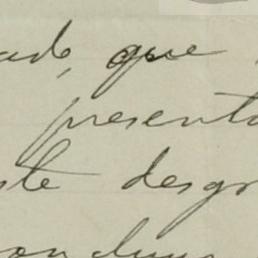 ado, que
presenta
ste desgr